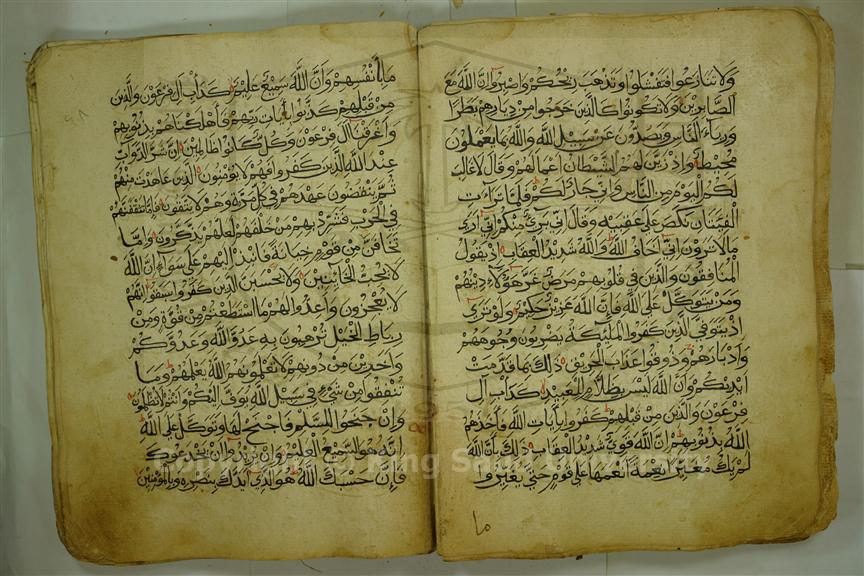 ولا تنازعوا فتفشلوا وتذهب ريحكم واصبروا ان الله مع
الصابرين ولا تكونوا كالذين خرجوا من ديارهم بطرا
ورياء الناس ويصدون عن سبيل الله والله بما يعملون
محيط واذ زين لهم الشيطان اعمالهم وقال لا غالب
لكم اليوم من الناس واني جار لكم فلما تراءت
الفئتان نكص على عقبيه وقال اني بريء منكم اني ارى
ما لا ترون اني اخاف الله والله شديد العقاب اذ يقول
المنافقون والذين في قلوبهم مرض غر هؤلاء دينهم
ومن يتوكل على الله فإن الله عزيز حكيم ولو ترى
اذ يتوفى الذين كفروا الملئكة يضربون وجوههم
وادبارهم وذوقوا عذاب الحريق ذلك بما قدمت
ايديكم وان الله ليس بظلام للعبيد كداب آل
فرعون والذين من قبلهم كفروا بايات الله فاخذهم
الله بذنوبهم ان الله قوي شديد العقاب ذلك بأن الله
لم يك مغيرا نعمة انعمها على قوم حتى يغيروا
ما
ما بأنفسهم وان الله سميع عليم كداب آل فرعون والذين
من قبلهم كذبوا بايات ربهم فاهلكناهم بذنوبهم
واغرقنا آل فرعون وكل كانوا ظالمين ان شر الدواب
عند الله الذين كفروا فهم لا يؤمنون الذين عاهدت منهم
ثم ينقضون عهدهم في كل مرة وهم لا يتقون فإما تثقفنهم
في الحرب فشرد بهم من خلفهم لعلهم يذكرون واما
تخافن من قوم خيانة فانبذ اليهم على سواء ان الله
لا يحب الخائنين ولا يحسبن الذين كفروا سبقوا انهم
لا يعجزون واعدوا لهم ما استطعتم من قوة ومن
رباط الخيل ترهبون به عدو الله وعدوكم
واخرين من دونهم لا تعلمونهم الله يعلمهم وما
تنفقوا من شيء في سبيل الله يوف اليكم وانتم لا تظلمون
وان جنحوا للسلم فاجنح لها وتوكل على الله
انه هو السميع العليم وان يريدوا ان يخدعوك
فإن حسبك الله هو الذي ايدك بنصره وبالمؤمنين
Copyright © King Saud University